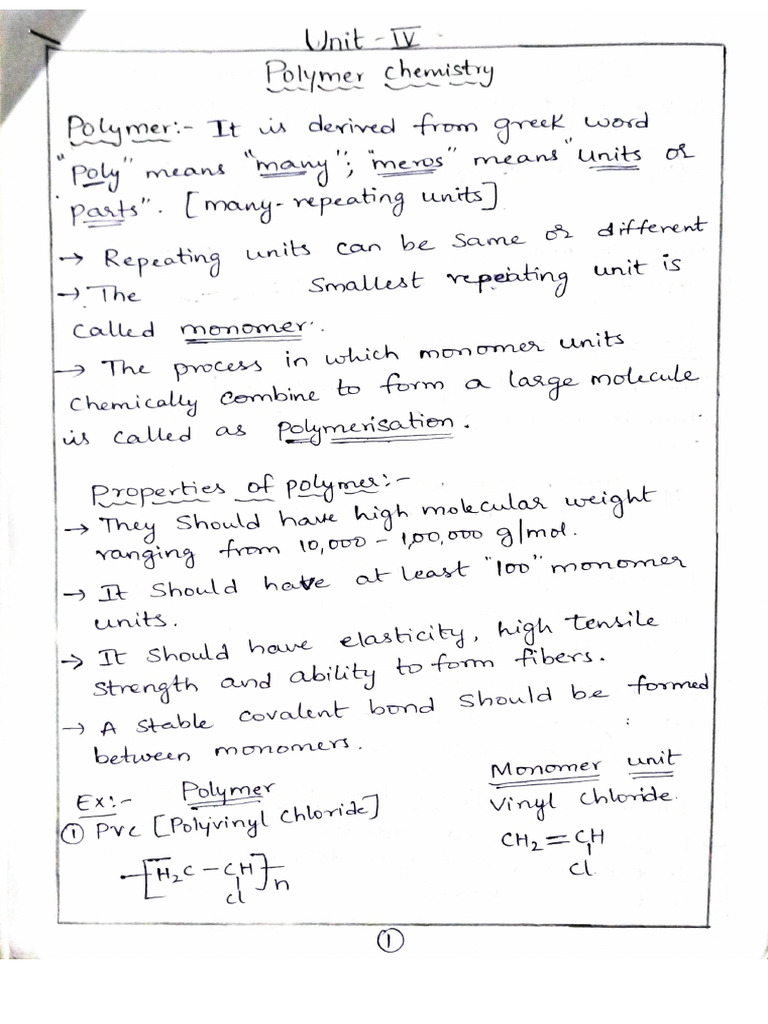 Unit - IV
Polymer chemistry
Polymer:- It is derived from greek word
"Poly" means "many"; "meros" means "units or
parts". [many-repeating units]
→ Repeating units can be same or different
→ The smallest repeating unit is
called monomer.
→ The process in which monomer units
chemically combine to form a large molecule
is called as polymerisation.
Properties of polymer:-
→ They should have high molecular weight
ranging from 10,000 - 1,00,000 g/mol.
→ It should have at least "100" monomer
units.
→ It should have elasticity, high tensile
strength and ability to form fibers.
→ A stable covalent bond should be formed
between monomers.
Ex:- Polymer Monomer unit
① PVC [Polyvinyl chloride] Vinyl chloride.
-[H₂C - CH]n CH₂ = CH
Cl Cl
①